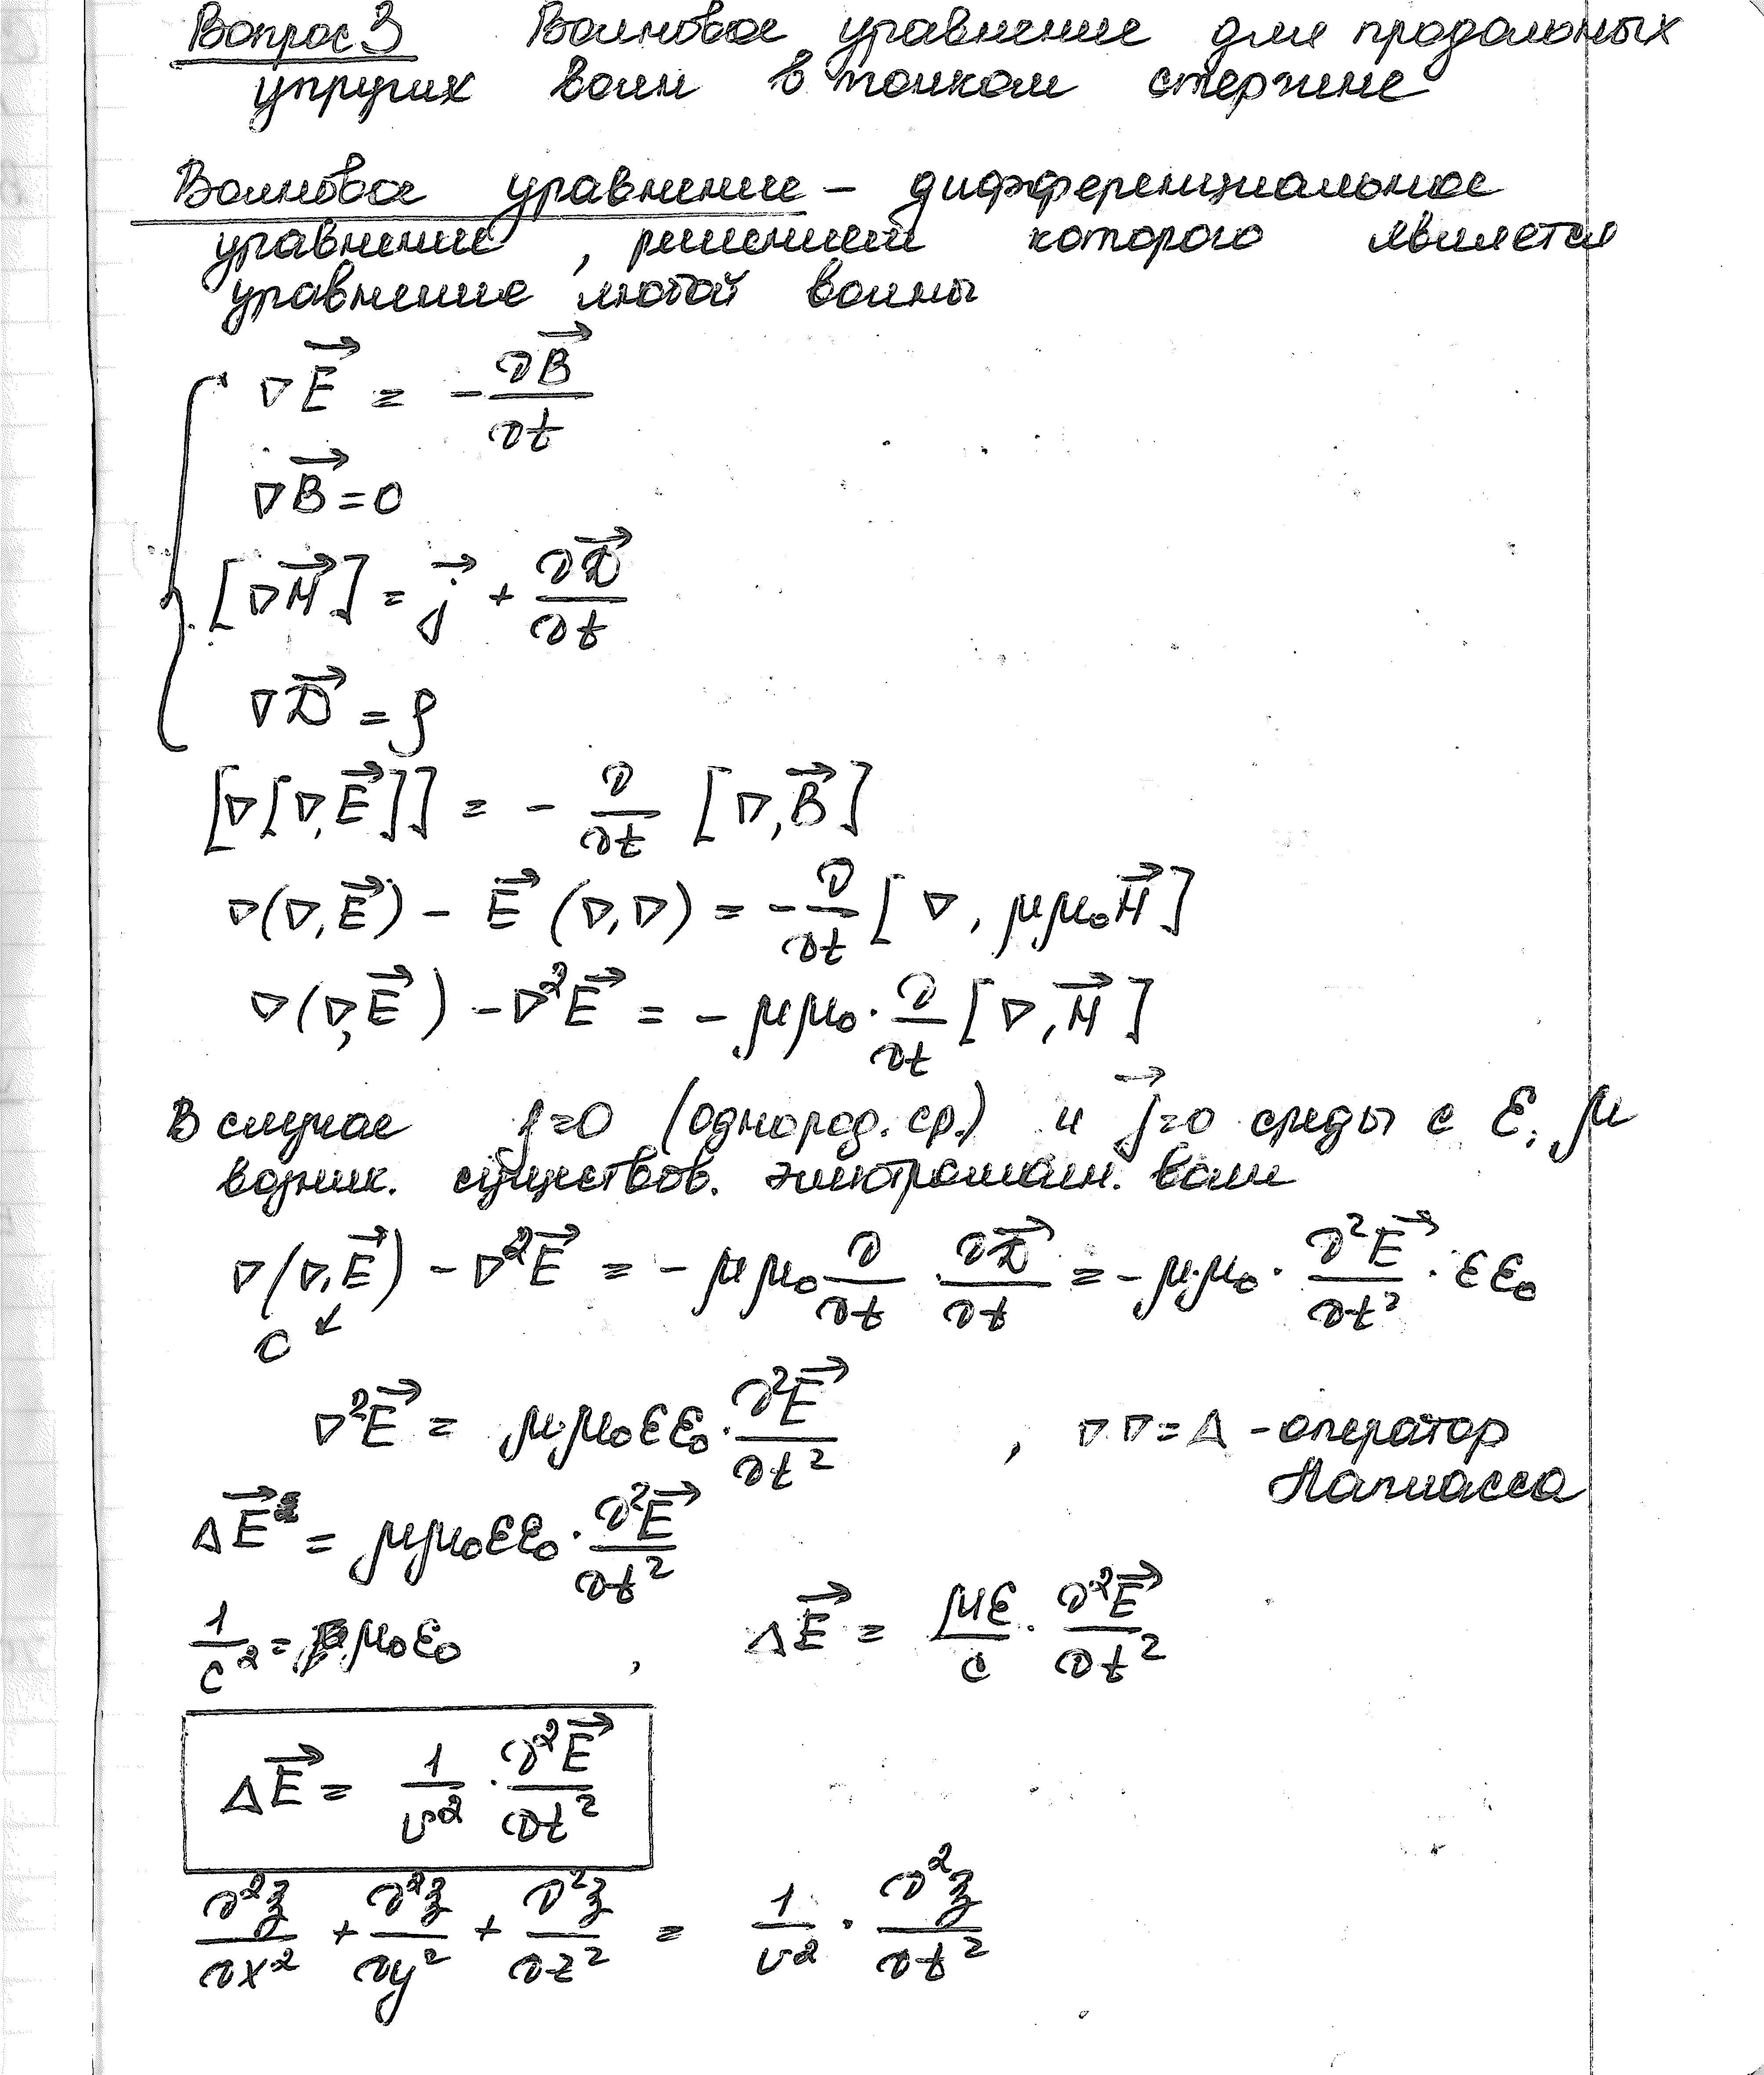 Вопрос 3 Волновое уравнение для продольных
упругих волн в тонком стержне
Волновое уравнение – дифференциальное
уравнение, решением которого является
уравнение любой волны
∇E⃗ = -∂B⃗/∂t
∇B⃗ = 0
[∇H⃗] = j⃗ + ∂D⃗/∂t
∇D⃗ = ρ
[∇[∇,E⃗]] = - ∂/∂t [∇,B⃗]
∇(∇,E⃗) - E⃗ (∇,∇) = -∂/∂t [∇, μμ₀H⃗]
∇(∇,E⃗) - ∇²E⃗ = - μμ₀ · ∂/∂t [∇,H⃗]
В случае ρ=0 (однород. ср.) и j⃗=0 среды с ε, μ
возник. существов. электромагн. волн
∇(∇,E⃗) - ∇²E⃗ = - μμ₀ ∂/∂t ∂D⃗/∂t = - μ·μ₀ · ∂²E⃗/∂t² · εε₀
0
∇²E⃗ = μ·μ₀εε₀ · ∂²E⃗/∂t² , ∇∇ = Δ - оператор
Лапласса
ΔE⃗ = μμ₀εε₀ · ∂²E⃗/∂t²
1/c² = μ₀ε₀ , ΔE⃗ = με/c · ∂²E⃗/∂t²
ΔE⃗ = 1/v² · ∂²E⃗/∂t²
∂²ξ/∂x² + ∂²ξ/∂y² + ∂²ξ/∂z² = 1/v² · ∂²ξ/∂t²